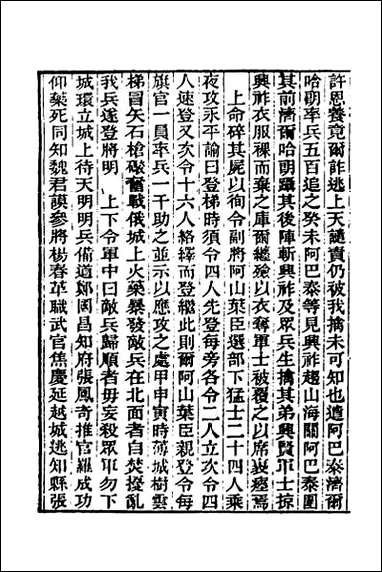 許恩養竟爾詐逃上天譴責仍被我擒未可知也遣阿巴泰濟爾
哈朗率兵五百追之癸未阿巴泰等見興祚趨山海關阿巴泰圍
其前濟爾哈朗躡其後陣斬興祚及眾兵生擒其弟興賢軍士掠
興祚衣服裸而棄之庫爾纏殮以衣奪軍士被覆之以席裹瘞焉
上命碎其屍以徇令副將阿山葉臣選部下猛士二十四人乘
夜攻永平諭曰登梯時須令四人先登每旁各令二人立次令四
人速登又次令十六人絡繹而登繼此則爾阿山葉臣親登令每
旗官一員率兵一千助之並示以應攻之處甲申寅時薄城樹雲
梯冒矢石槍礮奮戰俄城上火藥暴發敵兵在北面者自焚擾亂
我兵遂登將明上下令軍中曰敵兵歸順者毋妄殺眾軍勿下
城環立城上待天明明兵備道鄭國昌知府張鳳奇推官羅成功
仰藥死同知魏君謨參將楊春革職武官焦慶延越城逃知縣張